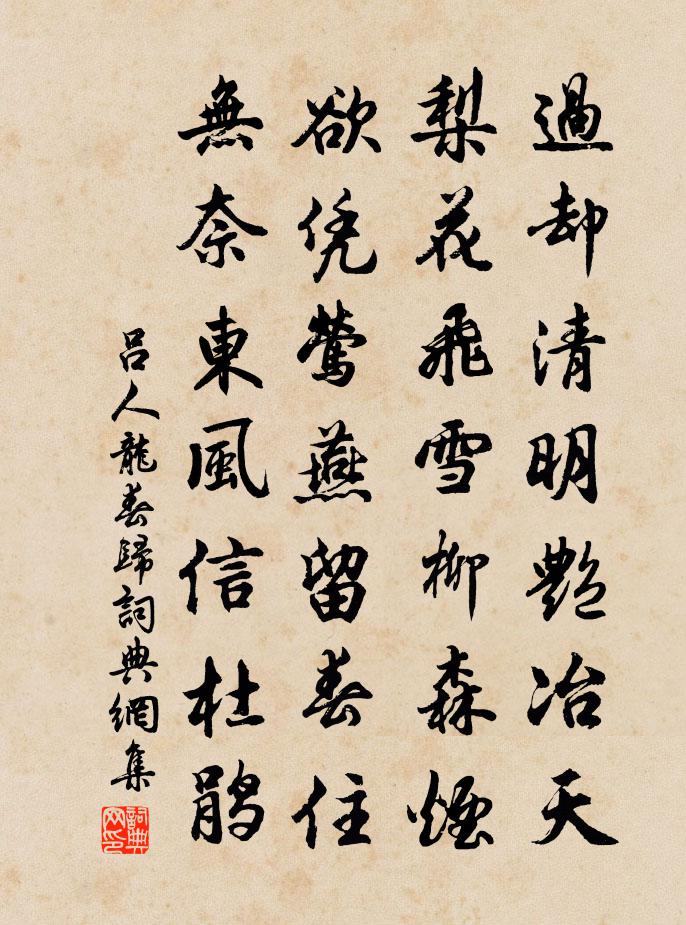 過却清明艷冶天
梨花飛雪柳森煙
欲凭鶯燕留春住
無奈東風信杜鹃
吕人龍春歸詞典網集
詞典网印